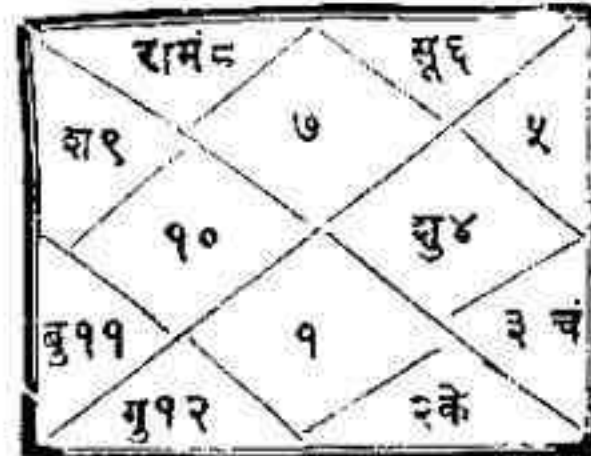 रामं८ सू६
श९ ७ ५
१० शु४
बु११ १ ३ चं
गु१२ २के